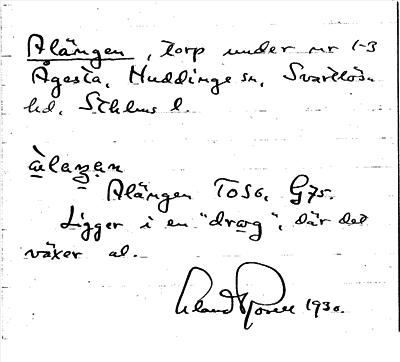 Alängen, torp under nr 1-3
Ågesta, Huddinge sn, Svartlösa
hd, Sthlms l.
àlaŋan
Alängen TO56. G75.
Ligger i en "drog", där det
växer al.
Erland Rosell 1930.